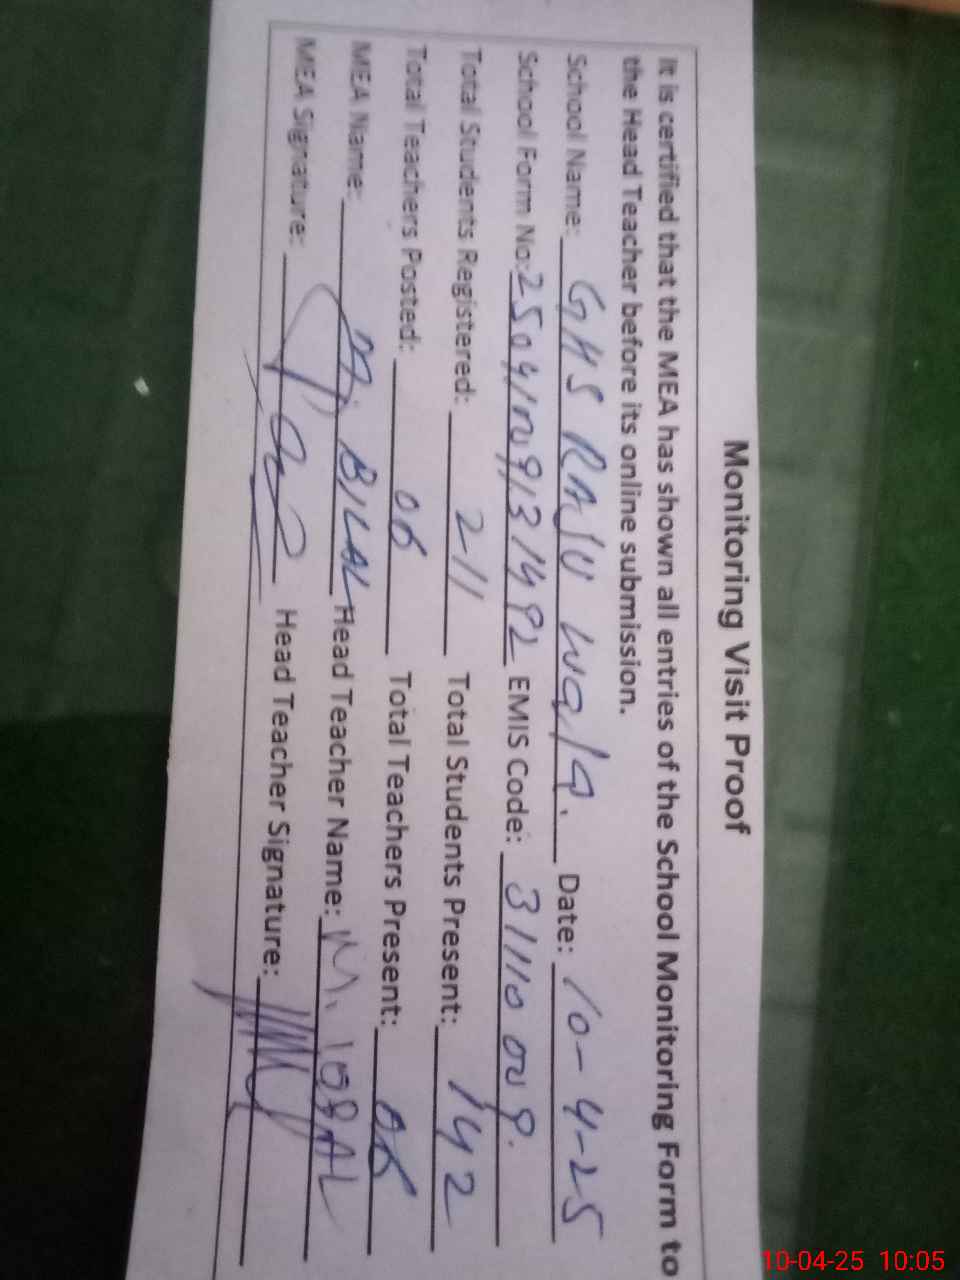 Monitoring Visit Proof
It is certified that the MEA has shown all entries of the School Monitoring Form to
the Head Teacher before its online submission.
School Name: GHS RAJU Wala. Date: 10-4-25
School Form No: EMIS Code:
Total Students Registered: 211 Total Students Present: 142
Total Teachers Posted: 06 Total Teachers Present: 06
MEA Name: M. BILAL Head Teacher Name: M. IQBAL
MEA Signature: Head Teacher Signature:
10-04-25 10:05